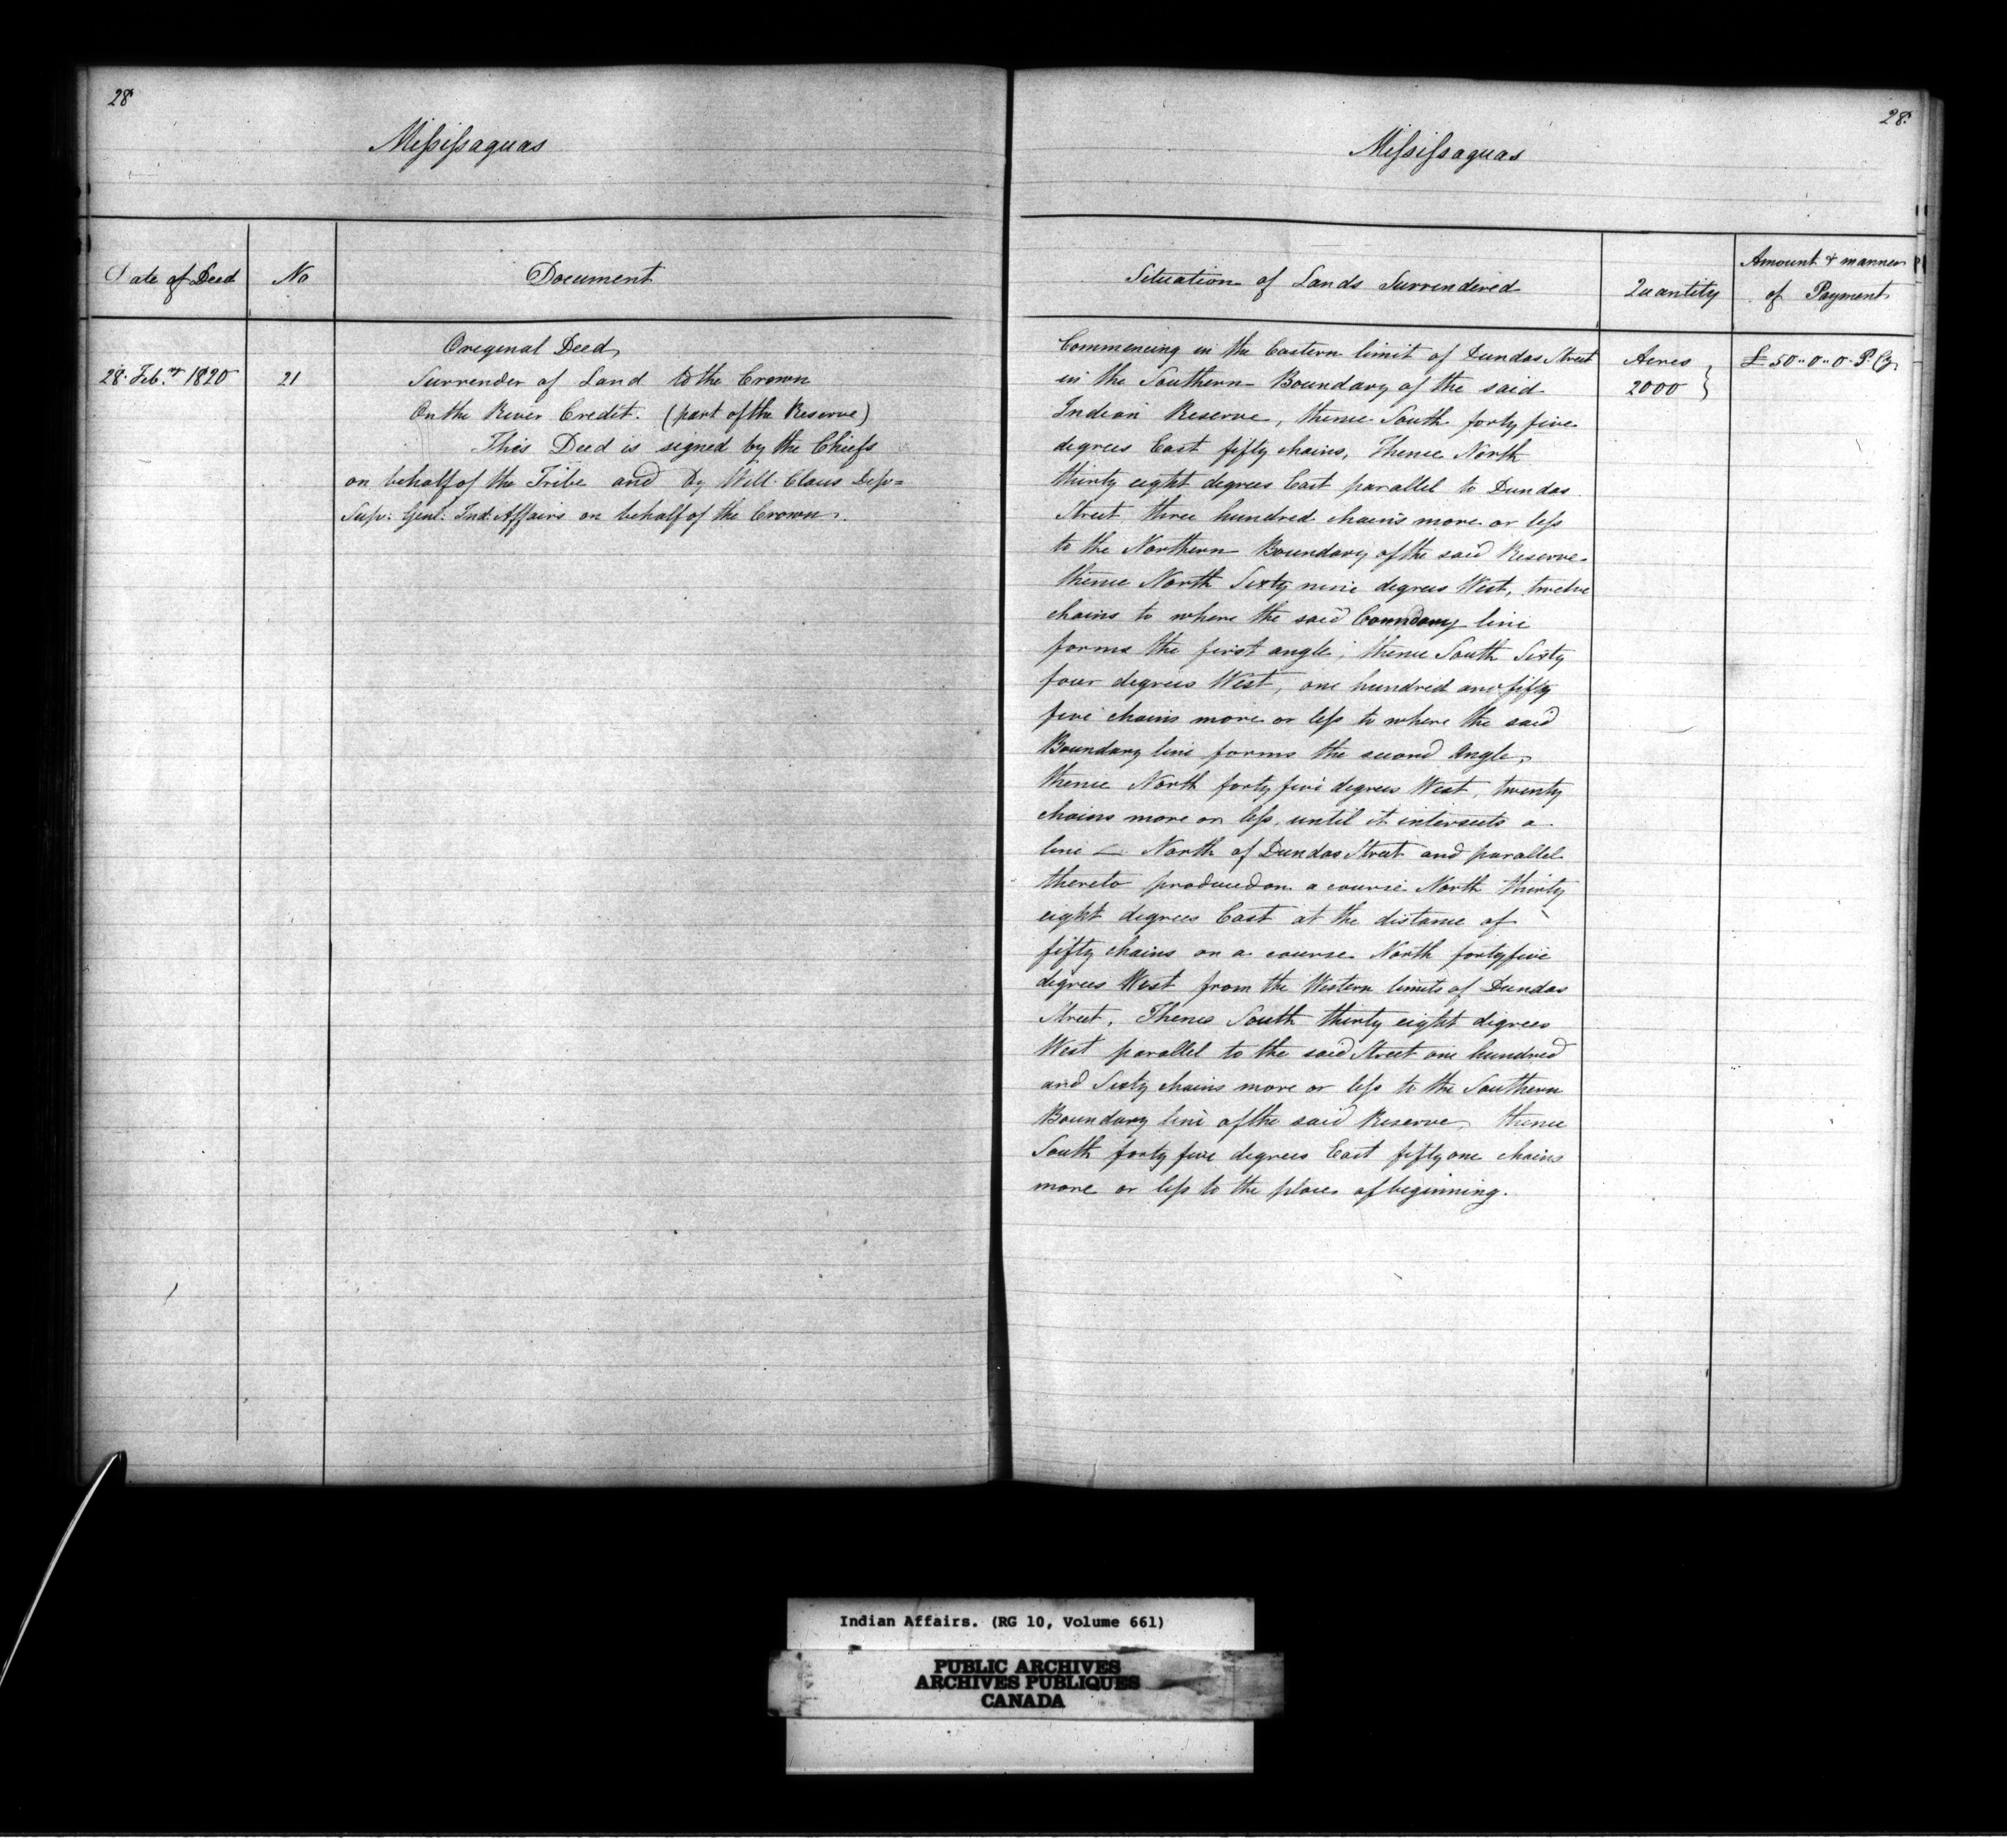 28
Missisaguas
Date of Deed No Document
Original Deed
28. Feb.ry 1820 21 Surrender of Land to the Crown
On the River Credit. (part of the Reserve)
This Deed is signed by the Chiefs
on behalf of the Tribe and by Will. Claus Dep=
Sup: Genl: Ind: Affairs on behalf of the Crown.
28.
Missisaguas
Situation of Lands Surrendered Quantity Amount & manner
of Payment
Commencing in the Eastern limit of Dundas Street Acres £50..0..0. P. Cy
in the Southern Boundary of the said 2000
Indian Reserve, thence South forty five
degrees East fifty chains, Thence North
thirty eight degrees East parallel to Dundas
Street three hundred chains more or less
to the Northern Boundary of the said Reserve
thence North Sixty nine degrees West, twelve
chains to where the said Bounndary line
forms the first angle; thence South Sixty
four degrees West, one hundred and fifty
five chains more or less to where the said
Boundary line forms the second Angle,
thence North forty five degrees West, twenty
chains more or less, until it intersects a
line North of Dundas Street and parallel
thereto produced on a course North thirty
eight degrees East at the distance of
fifty chains on a course North forty five
degrees West from the Western limits of Dundas
Street. Thence South thirty eight degrees
West parallel to the said Street one hundred
and Sixty chains more or less to the Southern
Boundary line of the said Reserve, thence
South forty five degrees East fifty one chains
more or less to the place of beginning.
Indian Affairs. (RG 10, Volume 661)
PUBLIC ARCHIVES
ARCHIVES PUBLIQUES
CANADA